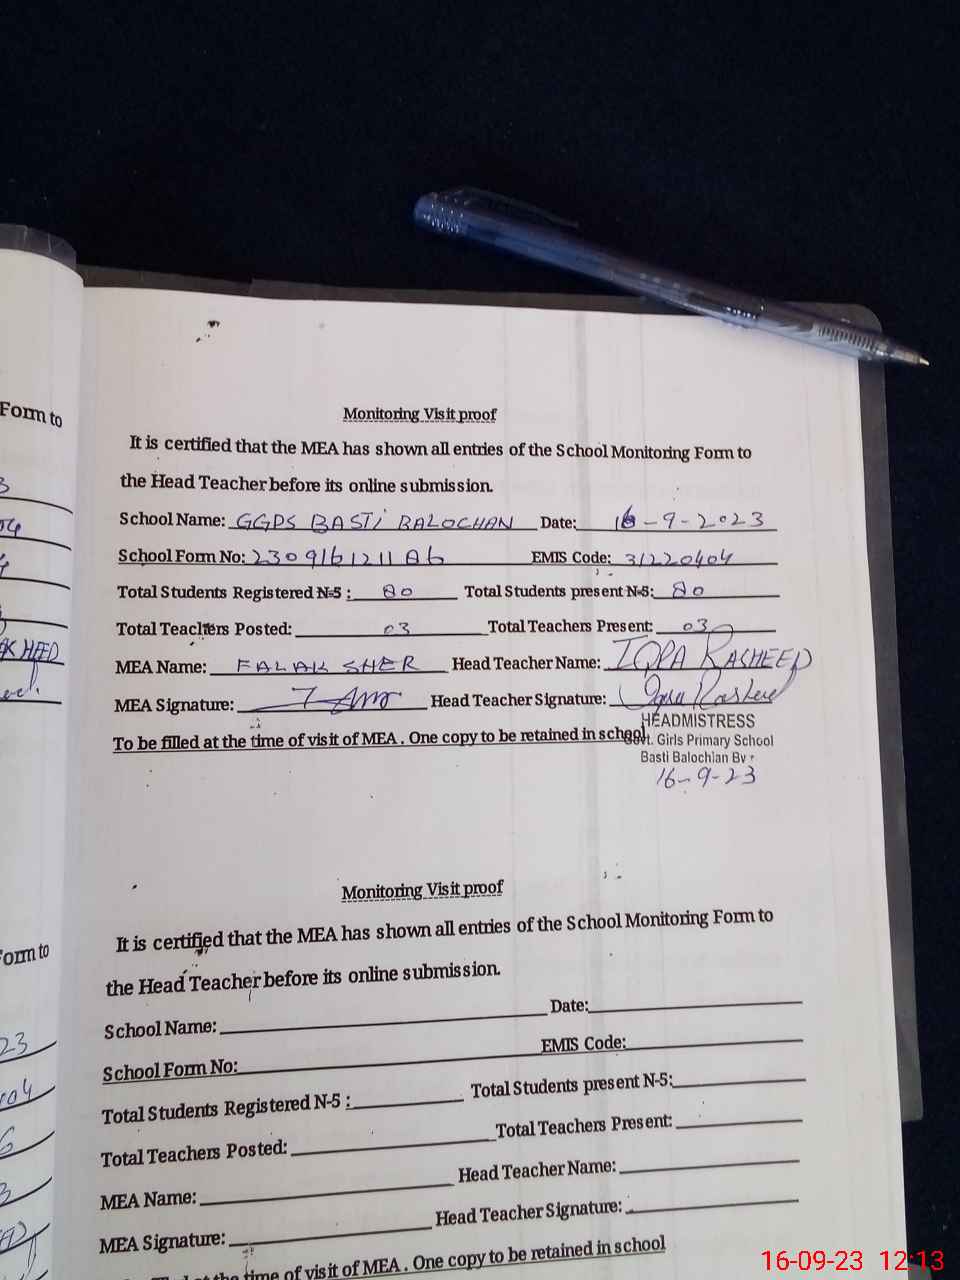 Form to
3
04
HEED
Monitoring Visit proof
It is certified that the MEA has shown all entries of the School Monitoring Form to
the Head Teacher before its online submission.
School Name: GGPS BASTI BALOCHAN Date: 16-9-2023
School Form No: EMIS Code: 31220404
Total Students Registered N-5 : 80 Total Students present N-5: 80
Total Teachers Posted: 03 Total Teachers Present: 03
MEA Name: FALAK SHER Head Teacher Name: IQRA RASHEED
MEA Signature: Head Teacher Signature: Iqra Rasheed
To be filled at the time of visit of MEA . One copy to be retained in school
HEADMISTRESS
Govt. Girls Primary School
Basti Balochan
16-9-23
Form to
23
04
6
3
Monitoring Visit proof
It is certified that the MEA has shown all entries of the School Monitoring Form to
the Head Teacher before its online submission.
School Name: Date:
School Form No: EMIS Code:
Total Students Registered N-5 : Total Students present N-5:
Total Teachers Posted: Total Teachers Present:
MEA Name: Head Teacher Name:
MEA Signature: Head Teacher Signature:
at the time of visit of MEA . One copy to be retained in school
16-09-23 12:13